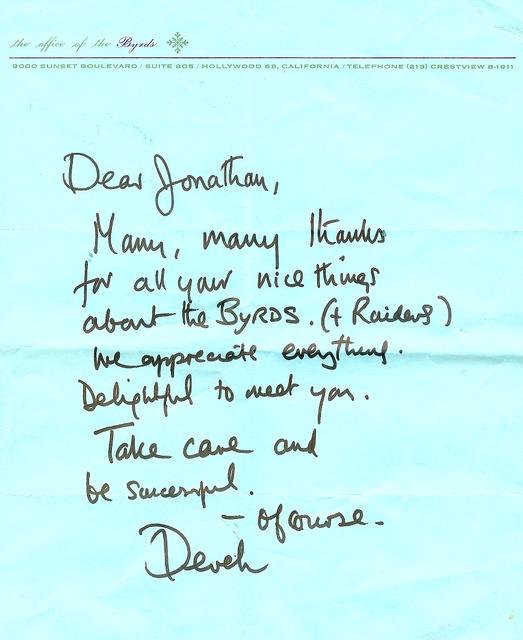 the office of the Byrds
9000 SUNSET BOULEVARD / SUITE 805 / HOLLYWOOD 69, CALIFORNIA / TELEPHONE (213) CRESTVIEW 8-1911
Dear Jonathan,
Many, many thanks
for all your nice things
about the BYRDS. (+ Raiders)
We appreciate everything.
Delightful to meet you.
Take care and
be successful.
- of course.
Derek